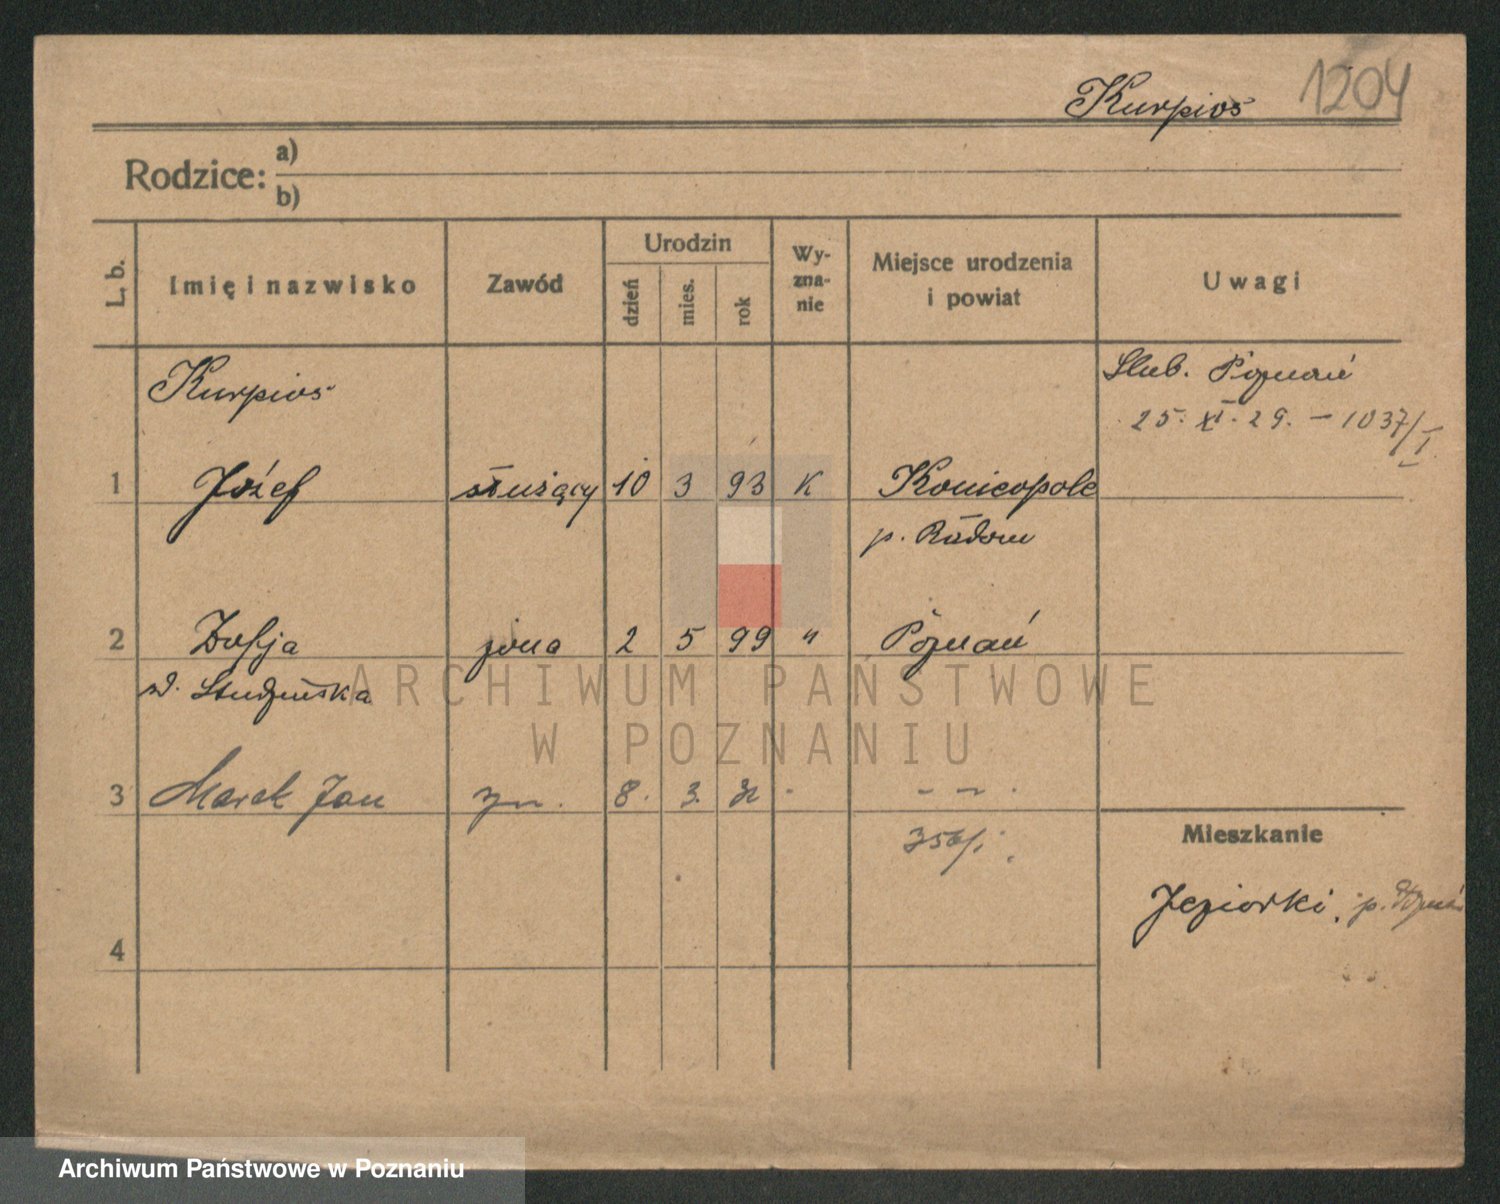 1204
Kurpios
Rodzice: a)
b)
L. b. Imię i nazwisko Zawód Urodzin dzień mies. rok Wy-zna-nie Miejsce urodzenia i powiat Uwagi
Kurpios Ślub. Poznań
25. XI. 29. – 1037/I
1 Józef służący 10 3 93 K Koniecpole
p. Radom
2 Zofja żona 2 5 99 " Poznań
d. Studzińska
ARCHIWUM PAŃSTWOWE
W POZNANIU
3 Marek Jan syn. 8. 3. - - - .
Mieszkanie
Jeziorki, p.
4
Archiwum Państwowe w Poznaniu